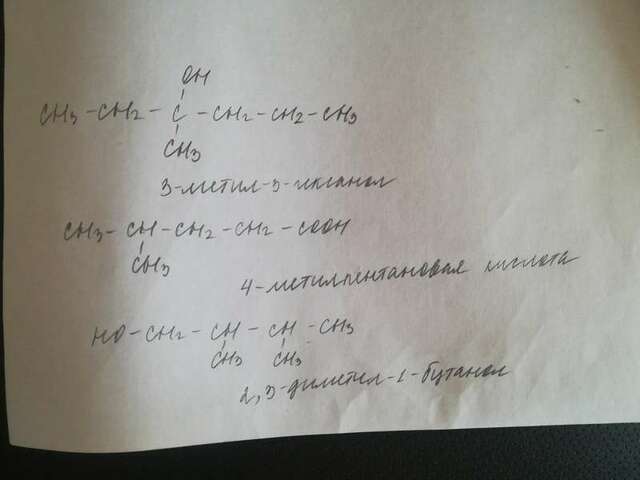 OH
CH3-CH2-C-CH2-CH2-CH3
CH3
3-метил-3-гексанол
CH3-CH-CH2-CH2-COOH
CH3
4-метилпентановая кислота
HO-CH2-CH-CH-CH3
CH3 CH3
2,3-диметил-1-бутанол